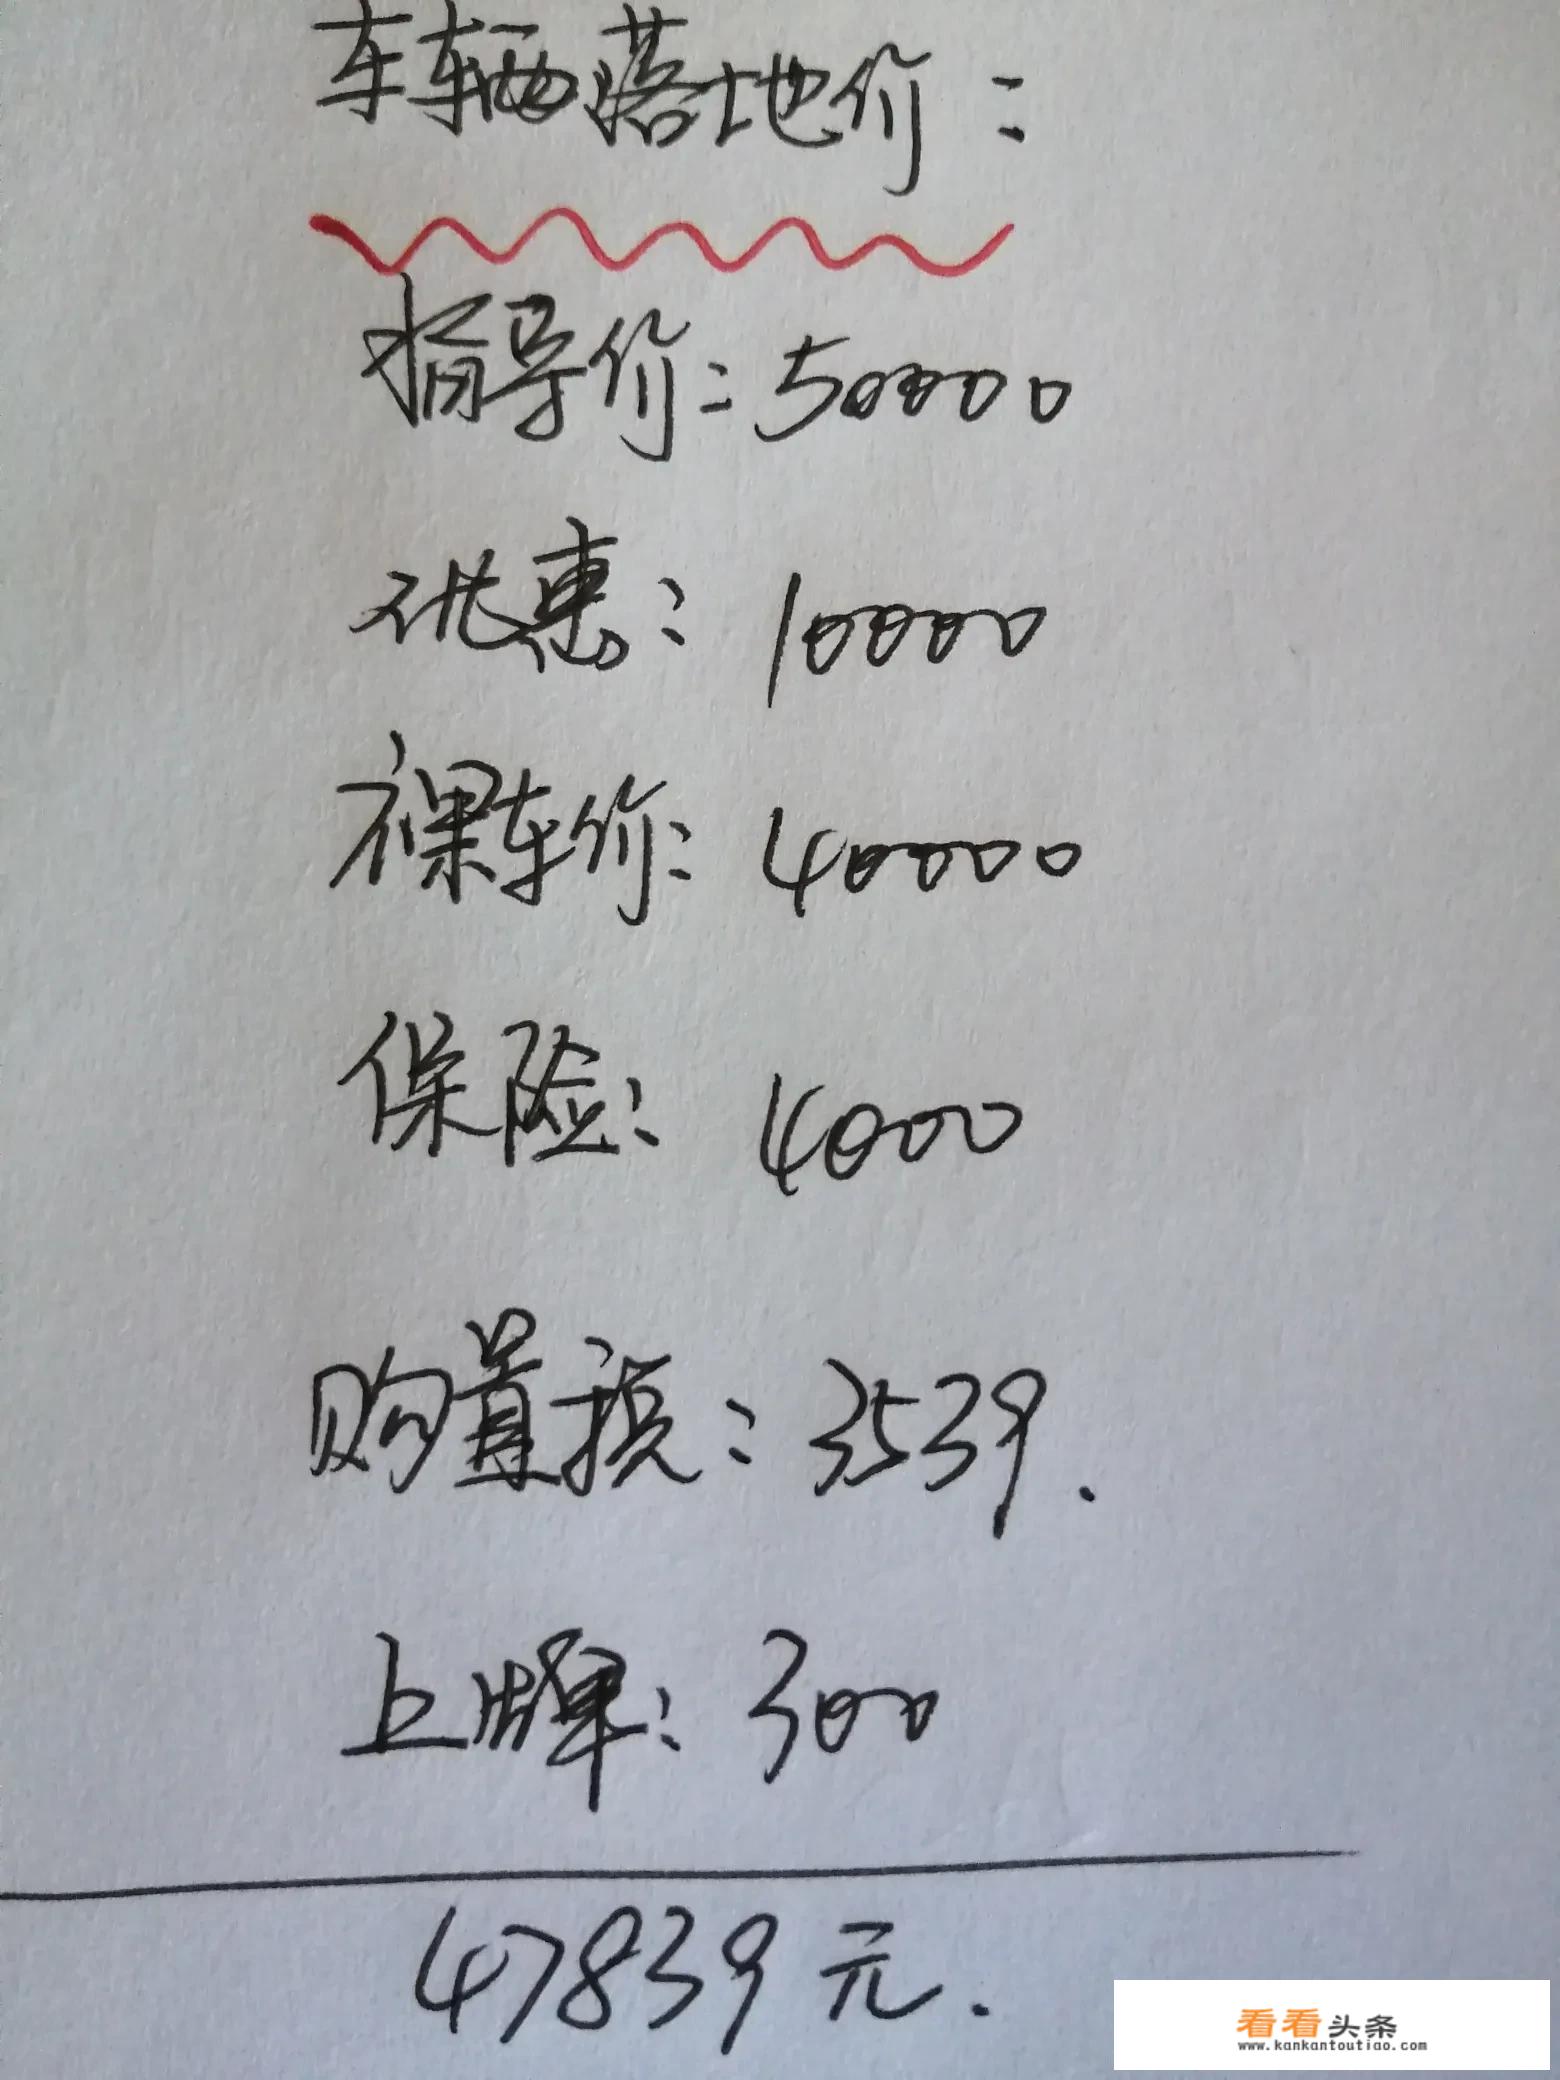 车辆落地价：
指导价：50000
优惠：10000
裸车价：40000
保险：4000
购置税：3539.
上牌：300
47839元.
看看头条
www.kankantoutiao.com